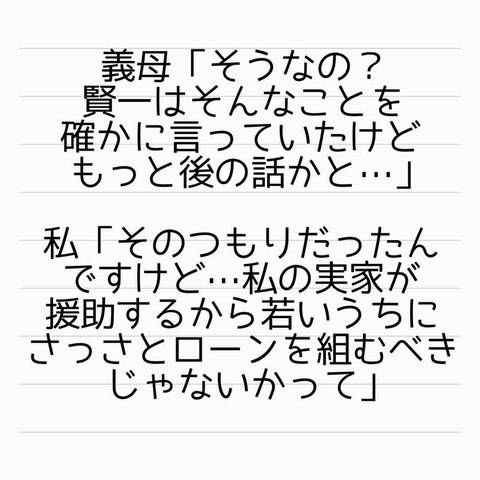 義母「そうなの？
賢一はそんなことを
確かに言っていたけど
もっと後の話かと…」
私「そのつもりだったん
ですけど…私の実家が
援助するから若いうちに
さっさとローンを組むべき
じゃないかって」